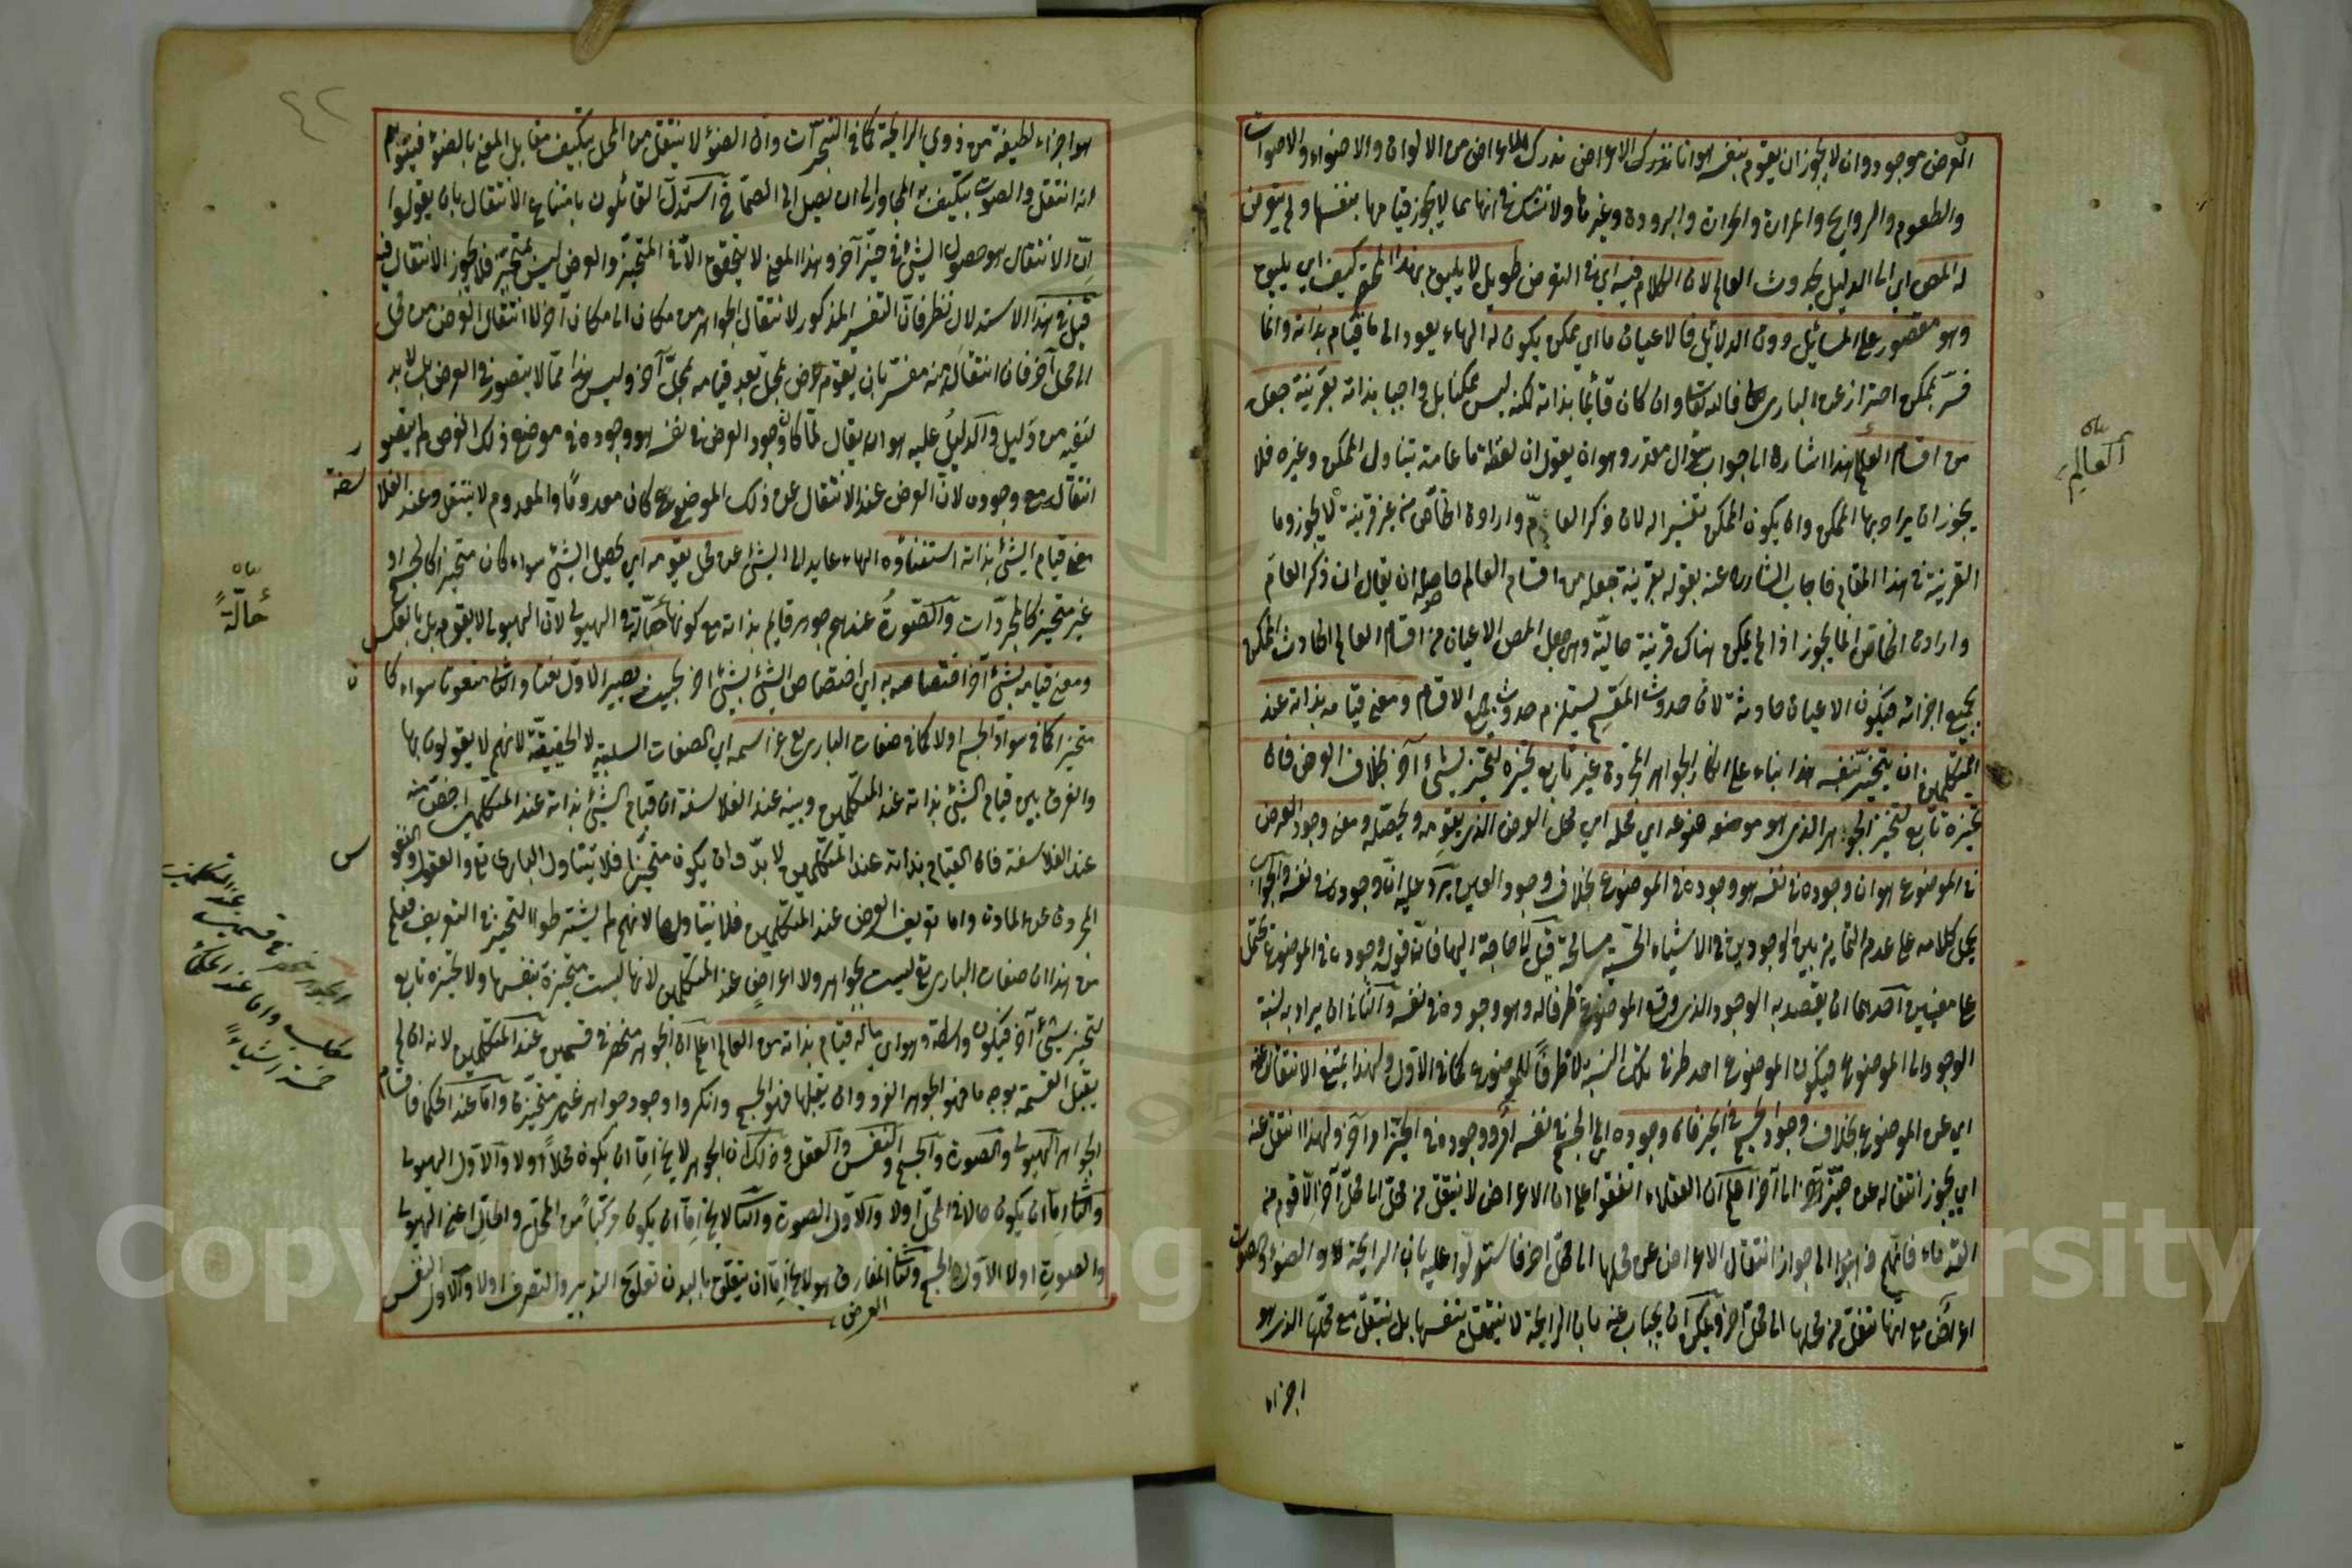 العرض موجود وان لا يجوز ان يقوم بنفسه هو انا ندرك الاعراض من الالوان والاضواء والاصوات
والطعوم والروايح والحرارة والبرودة وغيرها ولا نشك في انها مما لا يجوز قيامها بنفسها ولم يتعرض
له المص اي الى الدليل بحدوث العالم لان الكلام فيه اي في التعرض طويل لا يليق بهذا المختصر كيف اي يليق
وهو مقصور على المسائل دون الدلائل فالاعيان ما اي ممكن يكون له الهاء يعود الى ما قيام بذاته وانما
فسر بممكن احترازا عن الباري تعالى فانه تعالى وان كان قائما بذاته لكنه ليس بممكنا بل واجبا بذاته بقرينة جعله
من اقسام العالم هذا اشارة الى جواب سؤال مقدر وهو ان يقول ان لفظة ما عامة يتناول الممكن وغيره فلا
يجوز ان يراد بها الممكن وان يكون الممكن تفسيرا له لان ذكر العام وارادة الخاص من غير قرينة لا يجوز وما
القرينة في هذا المقام فاجاب الشارح عنه بقوله بقرينة جعله من اقسام العالم حاصله ان يقال ان ذكر العام
وارادة الخاص انما يجوز اذا لم يكن هناك قرينة حالية وهي جعل المص الاعيان من اقسام العالم الحادث الممكن
بجميع اجزائه فيكون الاعيان حادثة لان حدوث المقسم يستلزم حدوث جميع الاقسام ومعنى قيامه بذاته عند
المتكلمين ان يتحيز بنفسه هذا بناء على انكار الجواهر المجردة غير تابع تحيزه لتحيز شيء آخر بخلاف العرض فان
تحيزه تابع لتحيز الجوهر الذي هو موضوعه اي محله اي محل العرض الذي يقومه ويحصله ومعنى وجود العرض
في الموضوع هو ان وجوده في نفسه هو وجوده في الموضوع بخلاف وجود العين يرد عليه ان وجوده في نفسه والجواب
يحل كلامه على عدم التمايز بين الوجودين في الاشياء الحسية مسامحة قيل لا حاجة اليها فان قوله وجوده في الموضوع يحتمل
على معنيين احدهما ان يقصد به الوجود الذي وقع الموضوع ظرفا له وهو وجوده في نفسه والثاني ان يراد به نسبة
الوجود الى الموضوع فيكون الموضوع احد طرفي تلك النسبة لا ظرفا للموضوع كما في الاول ولهذا يمتنع الانتقال عنه
اي عن الموضوع بخلاف وجود الجسم في الحيز فان وجوده اي الجسم في نفسه امر ووجوده في الحيز امر آخر ولهذا انتقل عنه
اي يجوز انتقاله عن حيز الى آخر اعلم ان العقلاء اتفقوا على ان الاعراض لا ينتقل من محل الى محل آخر الا قوم من
القدماء فانهم ذهبوا الى جواز انتقال الاعراض عن محلها الى محل اخر فاستدلوا عليه بان الرايحة والضوء والصوت
اعراض مع انها تنتقل من محلها الى محل آخر ويمكن ان يجاب عنه بان الرايحة لا ينتقل بنفسها بل ينتقل مع محلها الذي هو
اجزاء
العالم
هو اجزاء لطيفة من ذوي الرايحة كما في التبخرات وان الضوء لا ينتقل من المحل بتكيف مقابل المضيء بالضوء فيتوهم
انه انتقل والصوت بتكيف المجاور الى ان يصل الى الصماخ استدل القائلون بامتناع الانتقال بان يقولوا
ان الانتقال هو حصول الشيء في حيز آخر وهذا المعنى لا يتحقق الا في المتحيز والعرض ليس بمتحيز فلا يجوز الانتقال فيه
قيل في هذا الاستدلال نظر فان التفسير المذكور لانتقال الجواهر من مكان الى مكان آخر لا انتقال العرض من محل
الى محل آخر فان انتقاله منه مفسر بان يقوم عرض بمحل بعد قيامه بمحل آخر وليس هذا مما لا يتصور في العرض بل لا بد
لنفيه من دليل والدليل عليه هو ان يقال لما كان وجود العرض في نفسه هو وجوده في موضوع ذلك العرض لم يتصور
انتقاله مع وجوده لان العرض عند الانتقال عن ذلك الموضوع كان معدوما والمعدوم لا ينتقل وعند الفلاسفة
معنى قيام الشيء بذاته استغناؤه الهاء عايد الى الشيء عن محل يقومه اي يحصل الشيء سواء كان متحيزا كالجسم او
غير متحيز كالمجردات والصورة عندهم جوهر قايم بذاته مع كونها حالة في الهيولى لان الهيولى لا يقوم بل بالعكس
ومعنى قيامه بشيء آخر اختصاصه به اي اختصاص الشيء بشيء اخر بحيث يصير الاول نعتا والثاني منعوتا سواء كان
متحيزا كما في سواد الجسم او لا كما في صفات الباري عز اسمه اي الصفات السلبية لا الحقيقة لانهم لا يقولون بها
والفرق بين قيام الشيء بذاته عند المتكلمين وبينه عند الفلاسفة ان قيام الشيء بذاته عند المتكلمين اخص منه
عند الفلاسفة فان القيام بذاته عند المتكلمين لا بد وان يكون متحيزا فلا يتناول الباري تع والعقول والنفوس
المجردة عن المادة واما تعريف العرض عند المتكلمين فلا يتناولها لانهم لم يشترطوا التحيز في التعريف فعلم
من هذا ان صفات الباري تع ليست بجواهر ولا اعراض عند المتكلمين لانها ليست متحيزة بنفسها ولا تحيزه تابع
لتحيز شيء آخر فيكون واسطة وهو اي ما له قيام بذاته من العالم اعلم ان الجوهر منحصر في قسمين عند المتكلمين لانه ان لم
يقبل القسمة بوجه ما فهو الجوهر الفرد وان يقبلها فهو الجسم وانكروا وجود جواهر غير متحيزة واما عند الحكما فاقسام
الجواهر الهيولى والصورة والجسم والنفس والعقل وذلك ان الجوهر لا يخ اما ان يكون محلا او لا والاول الهيولى
والثاني اما ان يكون حالا في المحل او لا والاول الصورة والثاني لا يخ اما ان يكون مركبا من المحل والحال اعني الهيولى
والصورة او لا الاول الجسم والثاني المفارق هو لا يخ اما ان يتعلق بالبدن تعلق التدبير والتصرف او لا والاول النفس
العرض
حالة